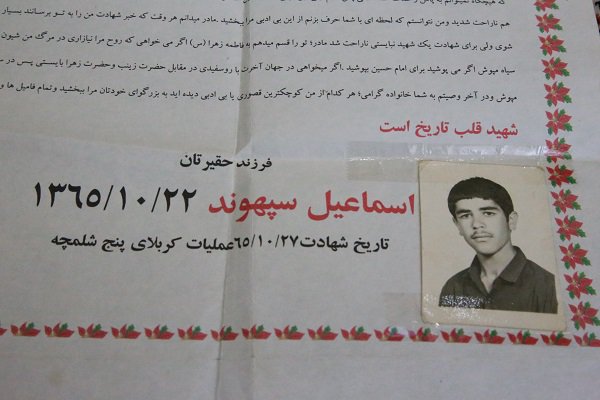 که هیچگاه نمیتوانم به
هم ناراحت شدید ومن نتوانستم که لحظه ای با شما حرف بزنم از این بی ادبی مرا ببخشید .مادر میدانم هر وقت که خبر شهادت من را به تو برسانند بسیار
شوی ولی برای شهادت یک شهید نبایستی ناراحت شد مادر؛ تو را قسم میدهم به فاطمه زهرا (س) اگر می خواهی که روح مرا نیازاری در مرگ من شیون
سیاه مپوش اگر می پوشید برای امام حسین بپوشید .اگر میخواهی در جهان آخرت با روسفیدی در مقابل حضرت زینب وحضرت زهرا بایستی پس در س
مپوش ودر آخر وصیتم به شما خانواده گرامی؛ هر کدام از من کوچکترین قصوری یا بی ادبی دیده اید به بزرگوای خودتان مرا ببخشید وتمام فامیل ها و
شهید قلب تاریخ است
فرزند حقیرتان
اسماعیل سپهوند ۱۳۶۵/۱۰/۲۲
تاریخ شهادت ۶۵/۱۰/۲۷عملیات کربلای پنج شلمچه